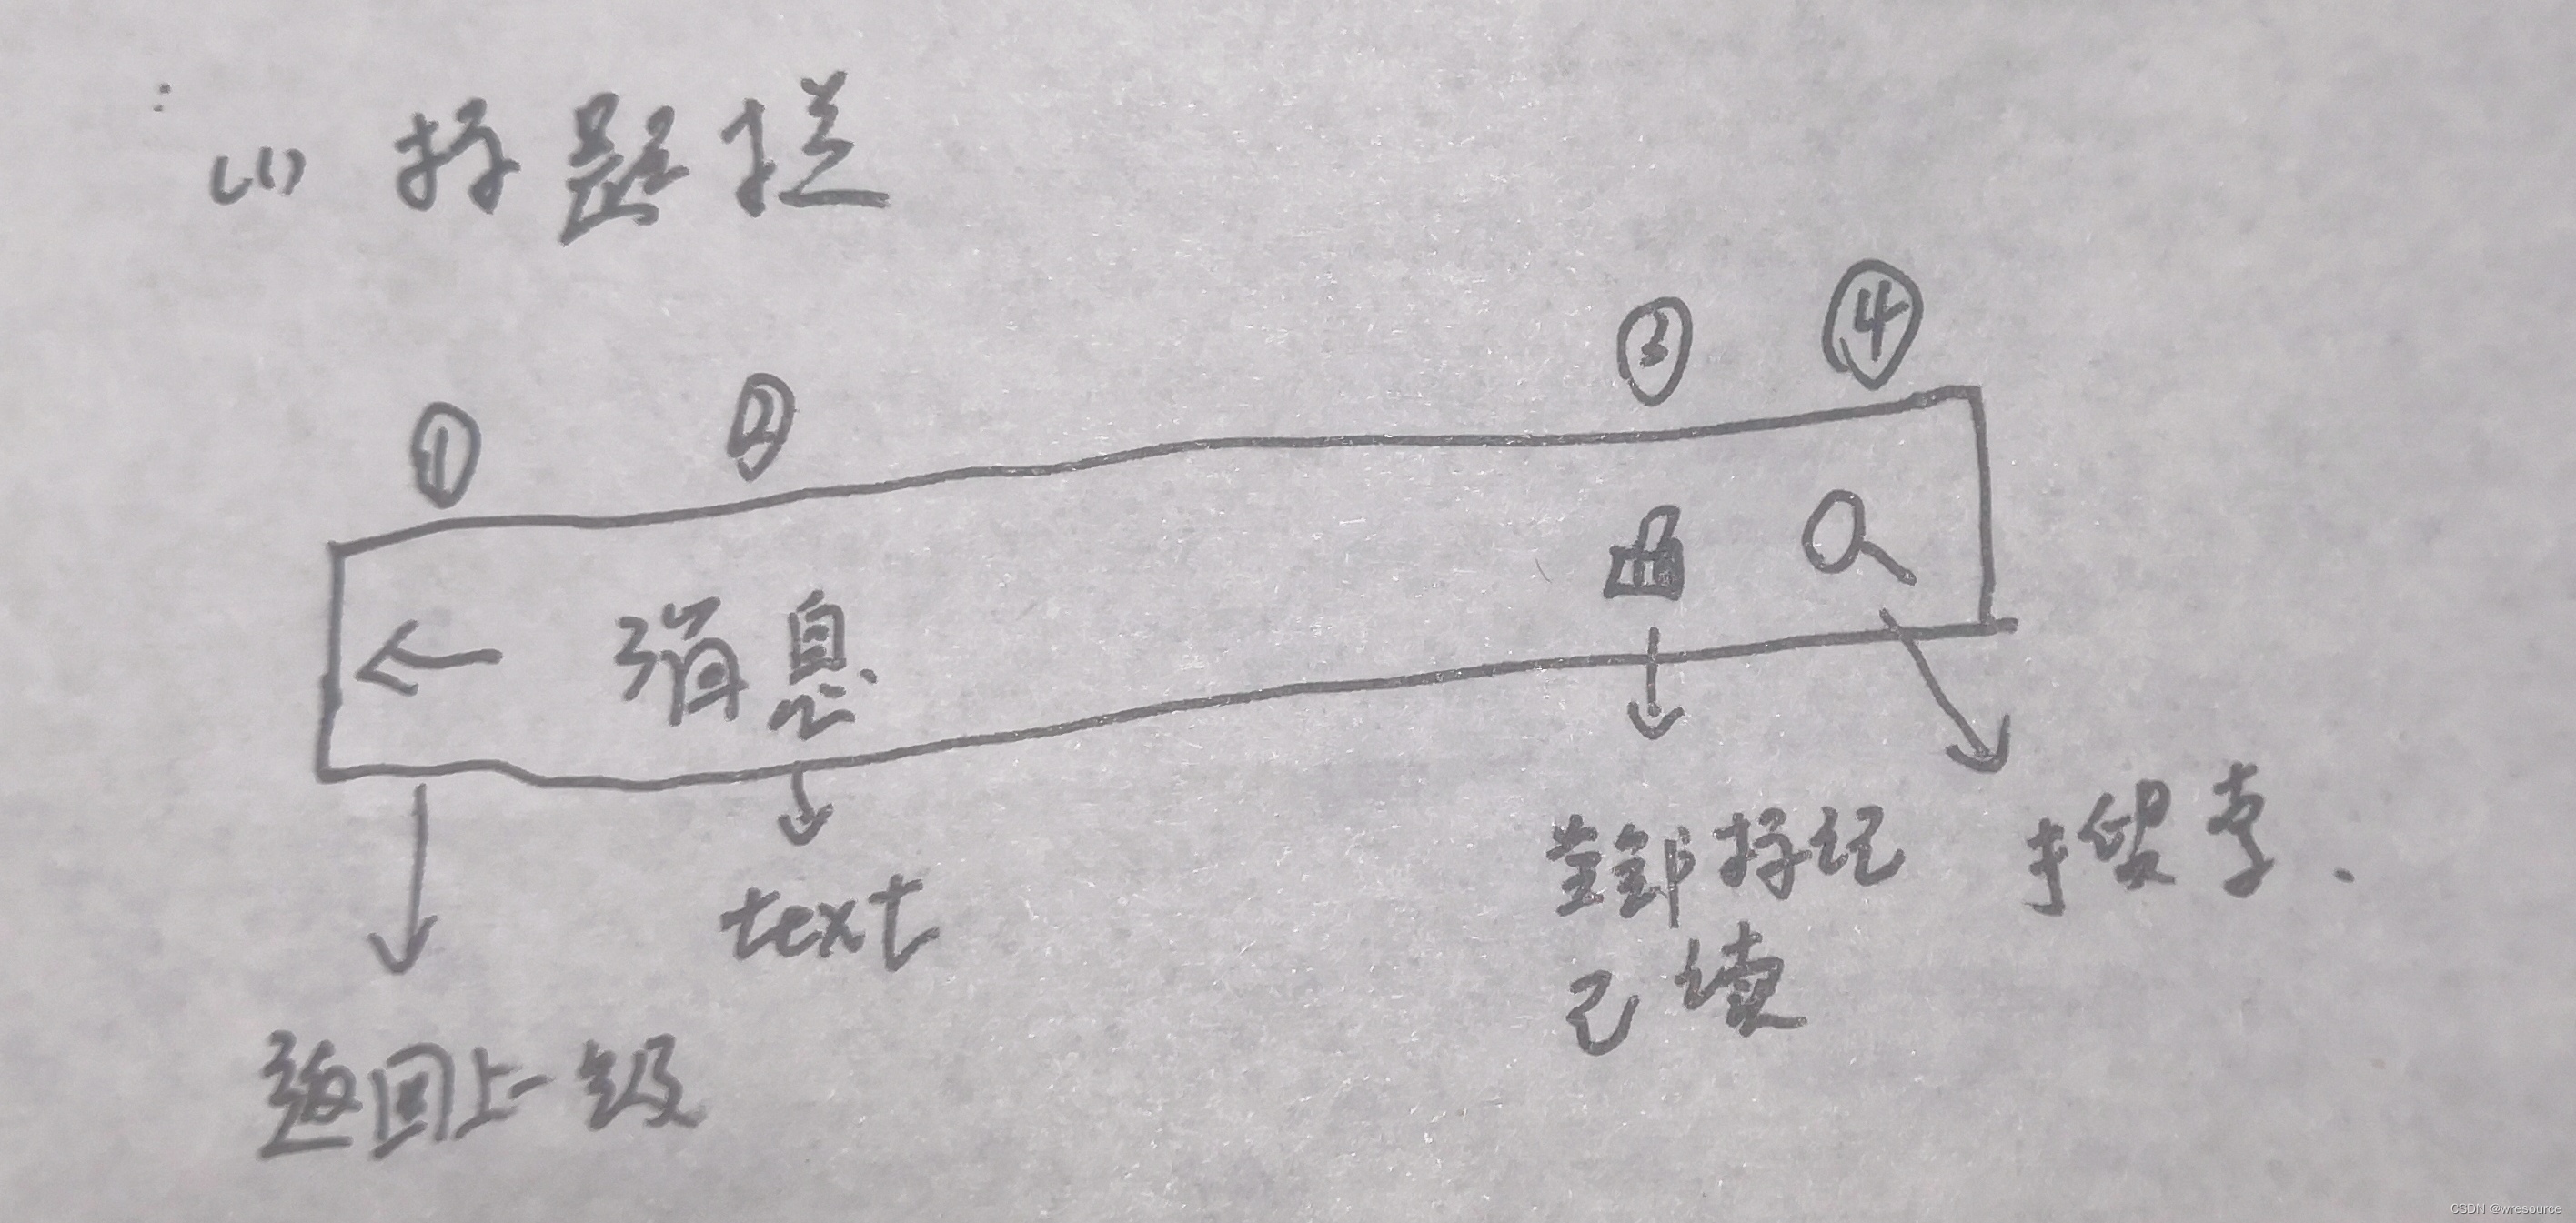 (1) 标题栏
① ② ③ ④
消息
text
全部标记
已读
搜索.
返回上一级
CSDN @wresource